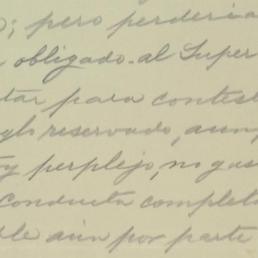 ; pero perdería
obligado al Super
tar para contest
glo reservado, aun
y perplejo, no gas
conducta completa
ble aún por parte